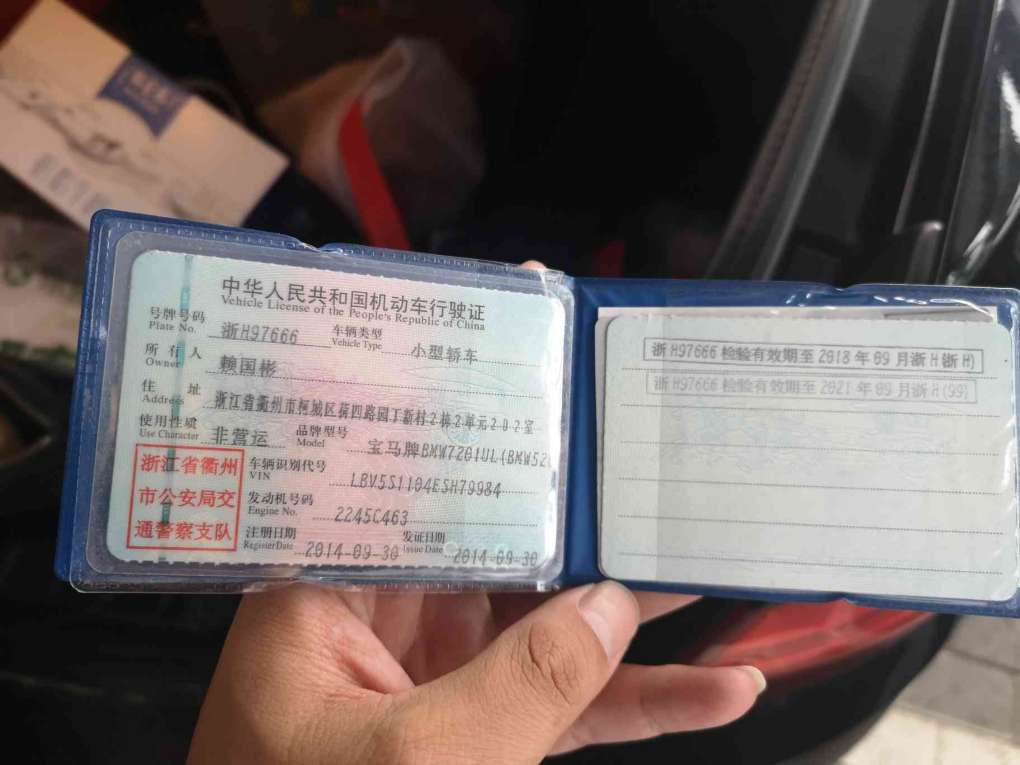 中华人民共和国机动车行驶证
Vehicle License of the People's Republic of China
号牌号码 浙H97666 车辆类型 小型轿车
Plate No. Vehicle Type
所有人 赖国彬
Owner
住址 浙江省衢州市柯城区荷四路园丁新村2栋2单元202室
Address
使用性质 非营运 品牌型号 宝马牌BMW7201UL(BMW520
Use Character Model
浙江省衢州
市公安局交
通警察支队
车辆识别代号 LBV5S1104ESH79984
VIN
发动机号码 2245C463
Engine No.
注册日期 2014-09-30 发证日期 2014-09-30
Register Date Issue Date
浙H97666 检验有效期至2018年09月浙H(浙H)
浙H97666 检验有效期至2021年09月浙H(99)